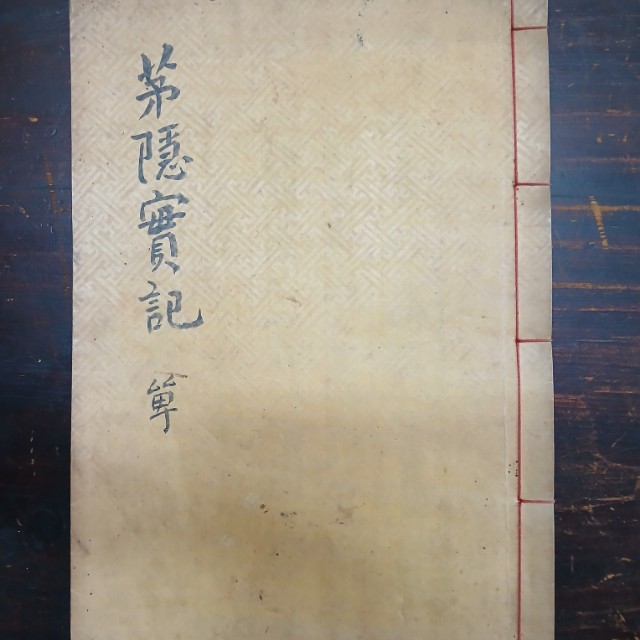 茅隱實記 單